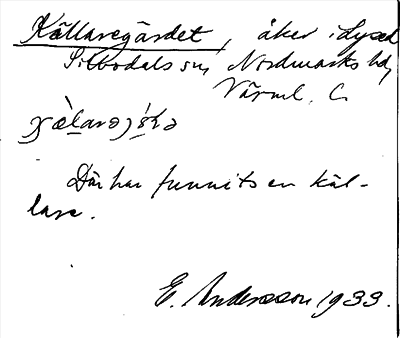 Källaregärdet, åker i Lysed
Silbodals sn, Nordmarks hd,
Värml. C.
Där har funnits en käl-
lare.
E. Andersson 1933.